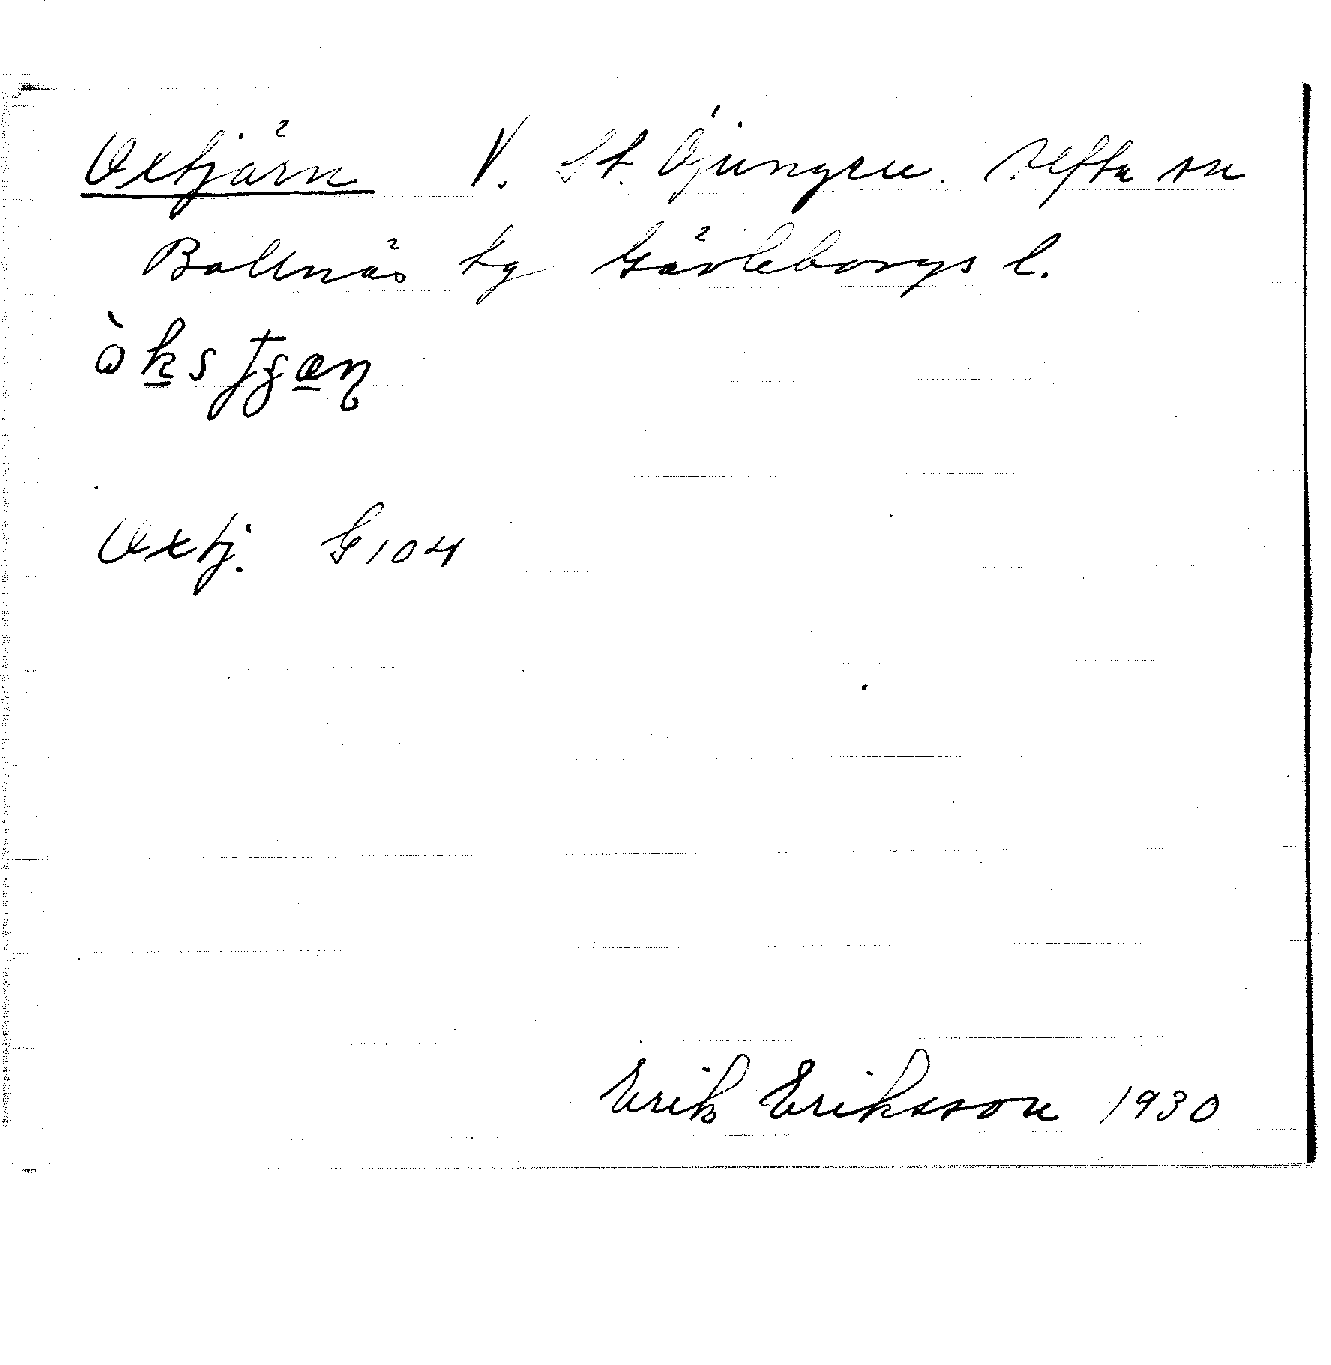 Oxtjärn V. St. Öjungen. Alfta sn
Bollnäs tg Gävleborgs l.
Oxtj. G104
Erik Eriksson 1930